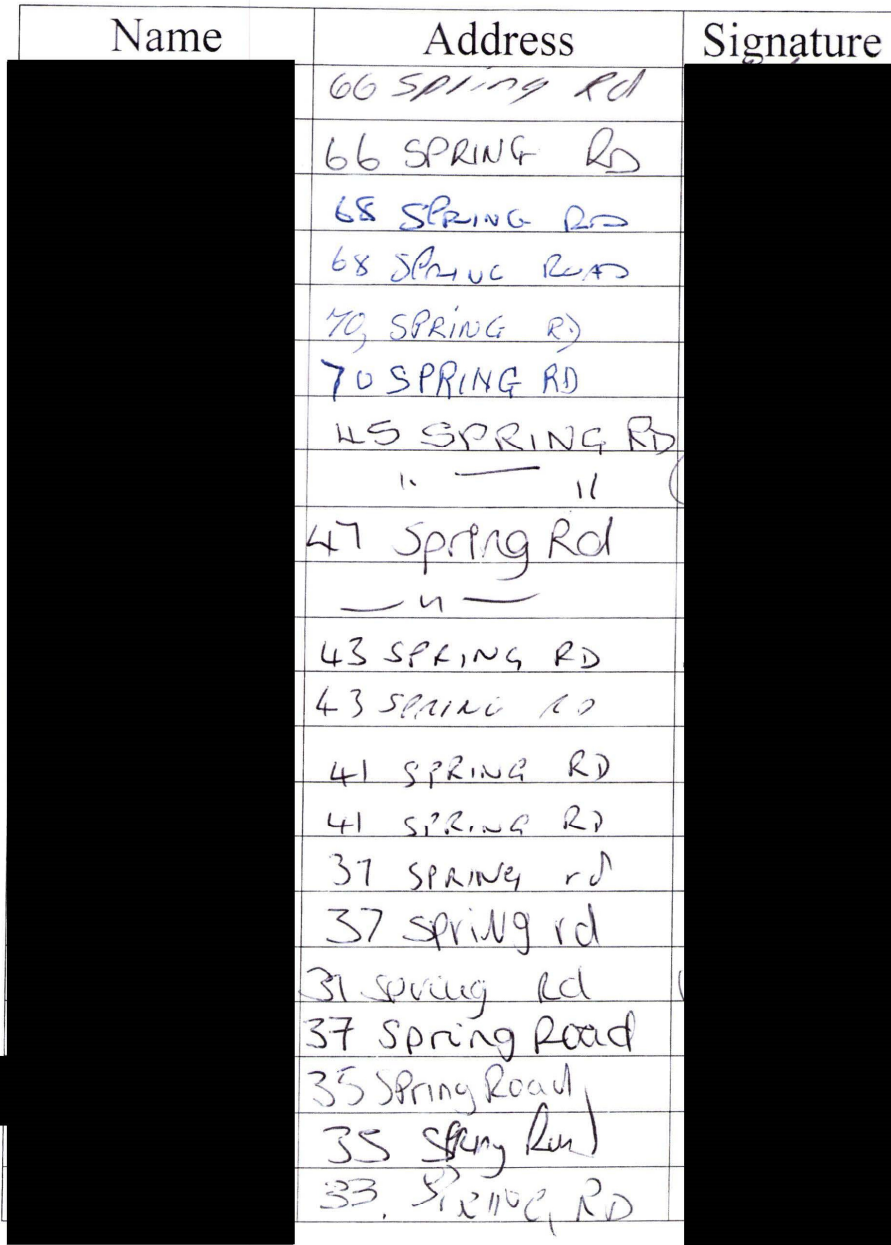 Name Address Signature
66 Spring Rd
66 SPRING RD
68 SPRING RD
68 SPRING ROAD
70, SPRING RD
70 SPRING RD
45 SPRING RD
" — "
47 Spring Rd
— " —
43 SPRING RD
43 SPRING RD
41 SPRING RD
41 SPRING RD
37 SPRING rd
37 Spring rd
37 Spring Rd
37 Spring Road
35 Spring Road
35 Spring Road
33. SPRING RD